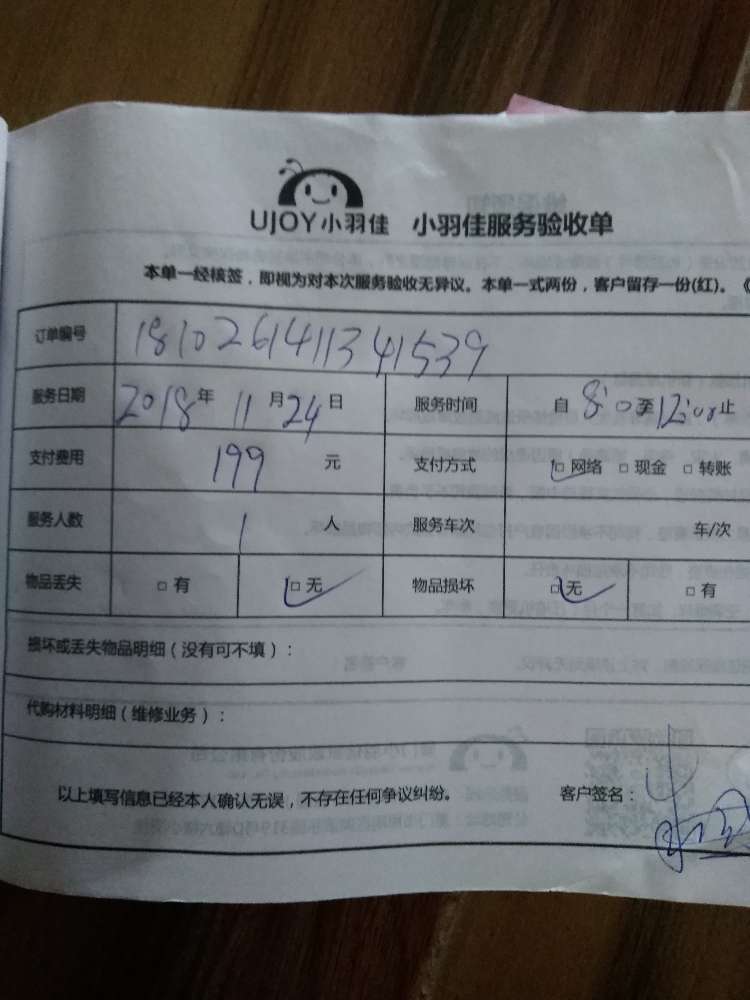 UJOY小羽佳 小羽佳服务验收单
本单一经核签，即视为对本次服务验收无异议。本单一式两份，客户留存一份(红)。《
订单编号 1810261411341539
服务日期 2018年 11月24日 服务时间 自 8:00至12:00止
支付费用 199 元 支付方式 □网络 □现金 □转账
服务人数 1 人 服务车次 车/次
物品丢失 □有 □无 物品损坏 □无 □有
损坏或丢失物品明细（没有可不填）：
代购材料明细（维修业务）：
以上填写信息已经本人确认无误，不存在任何争议纠纷。 客户签名：